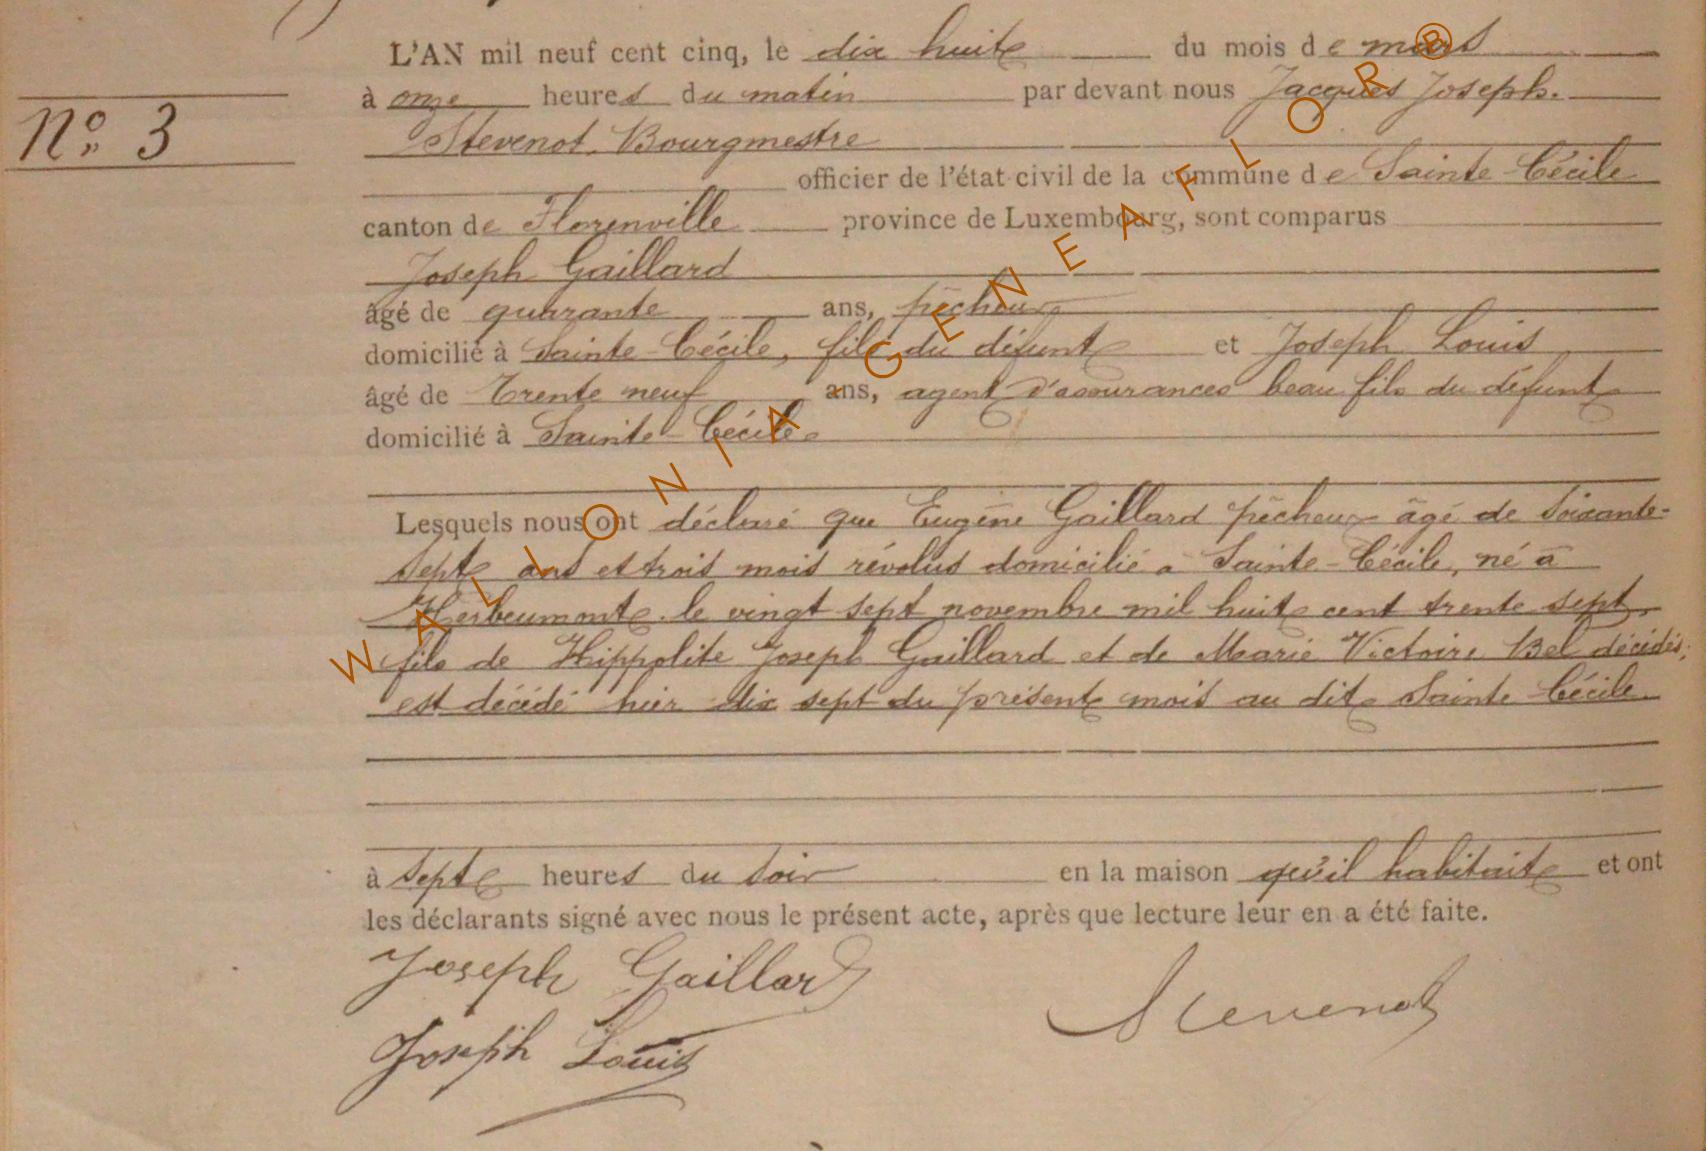 L'AN mil neuf cent cinq, le dix huit du mois de mars
à onze heures du matin par devant nous Jacques Joseph
Stevenot Bourgmestre
officier de l'état civil de la commune de Sainte-Cécile
canton de Florenville province de Luxembourg, sont comparus
Nº 3
Joseph Gaillard
âgé de quarante ans, pêcheur
domicilié à Sainte-Cécile, fils du défunt et Joseph Louis
âgé de trente neuf ans, agent d'assurances beau fils du défunt
domicilié à Sainte-Cécile
Lesquels nous ont déclaré que Eugène Gaillard pêcheur âgé de soixante-
sept ans et trois mois révolus domicilié à Sainte-Cécile, né à
Herbeumont le vingt sept novembre mil huit cent trente sept,
fils de Hippolite Joseph Gaillard et de Marie Victoire Bel décédés,
est décédé hier dix sept du présent mois au dit Sainte Cécile
à sept heures du soir en la maison qu'il habitait et ont
les déclarants signé avec nous le présent acte, après que lecture leur en a été faite.
Joseph Gaillard
Stevenot
Joseph Louis
WALLONIA-GENEAFLOR®